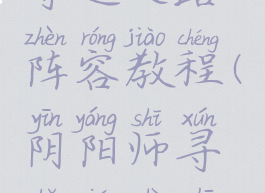 zhèn róng jiào chéng
阵容教程(
yīn yáng shī xún
阴阳师寻